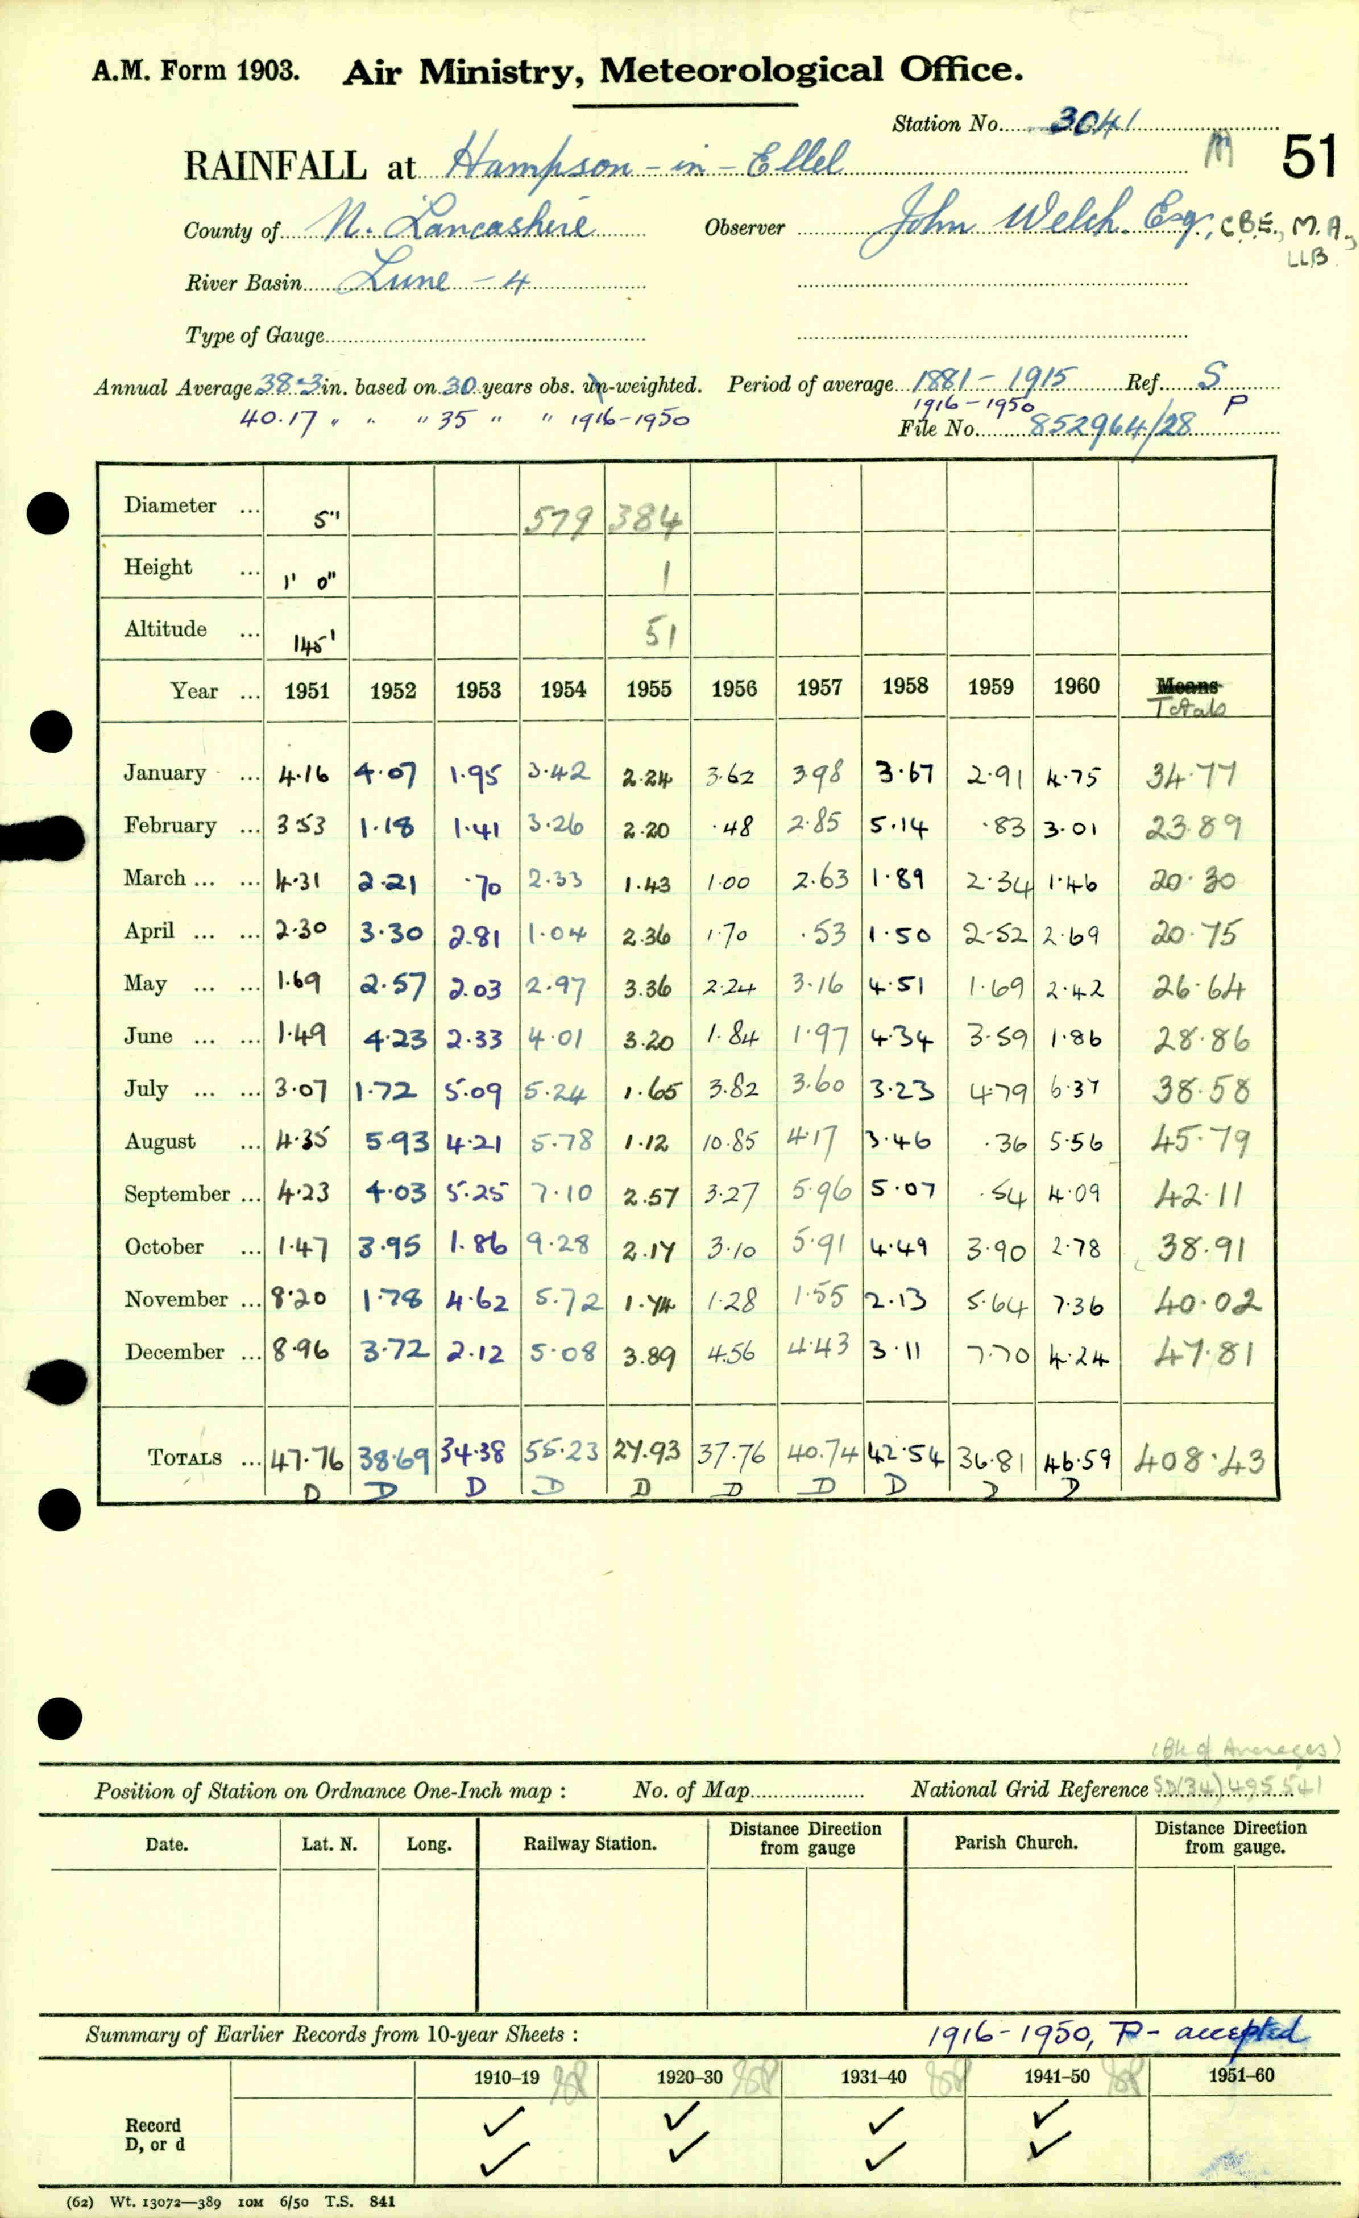 A.M. Form 1903. Air Ministry, Meteorological Office.
Station No. 3041
RAINFALL at Hampson-in-Ellel M 51
County of N. Lancashire Observer John Welch. Esq., C.B.E., M.A., LLB.
River Basin Lune - 4
Type of Gauge
Annual Average 38.3 in. based on 30 years obs. un-weighted. Period of average 1881-1915 Ref. S
40.17 " " " 35 " " 1916-1950 1916-1950 P
File No. 852964/28
Diameter ... 5" 579 384
Height ... 1' 0" 1
Altitude ... 145' 51
Year ... 1951 1952 1953 1954 1955 1956 1957 1958 1959 1960 Means
Totals
January ... 4.16 4.07 1.95 3.42 2.24 3.62 3.98 3.67 2.91 4.75 34.77
February ... 3.53 1.18 1.41 3.26 2.20 .48 2.85 5.14 .83 3.01 23.89
March ... ... 4.31 2.21 .70 2.33 1.43 1.00 2.63 1.89 2.34 1.46 20.30
April ... ... 2.30 3.30 2.81 1.04 2.36 1.70 .53 1.50 2.52 2.69 20.75
May ... ... 1.69 2.57 2.03 2.97 3.36 2.24 3.16 4.51 1.69 2.42 26.64
June ... ... 1.49 4.23 2.33 4.01 3.20 1.84 1.97 4.34 3.59 1.86 28.86
July ... ... 3.07 1.72 5.09 5.24 1.65 3.82 3.60 3.23 4.79 6.37 38.58
August ... 4.35 5.93 4.21 5.78 1.12 10.85 4.17 3.46 .36 5.56 45.79
September ... 4.23 4.03 5.25 7.10 2.57 3.27 5.96 5.07 .54 4.09 42.11
October ... 1.47 3.95 1.86 9.28 2.17 3.10 5.91 4.49 3.90 2.78 38.91
November ... 8.20 1.78 4.62 5.72 1.74 1.28 1.55 2.13 5.64 7.36 40.02
December ... 8.96 3.72 2.12 5.08 3.89 4.56 4.43 3.11 7.70 4.24 47.81
TOTALS ... 47.76 38.69 34.38 55.23 27.93 37.76 40.74 42.54 36.81 46.59 408.43
D D D D D D D D D D
(Bk of Averages)
Position of Station on Ordnance One-Inch map : No. of Map National Grid Reference SD(34)495541
Date. Lat. N. Long. Railway Station. Distance from Direction gauge Parish Church. Distance from Direction gauge.
Summary of Earlier Records from 10-year Sheets : 1916-1950, P - accepted
1910–19 1920–30 1931–40 1941–50 1951–60
Record ✓ ✓ ✓ ✓
D, or d ✓ ✓ ✓ ✓
(62) Wt. 13072—389 10M 6/50 T.S. 841